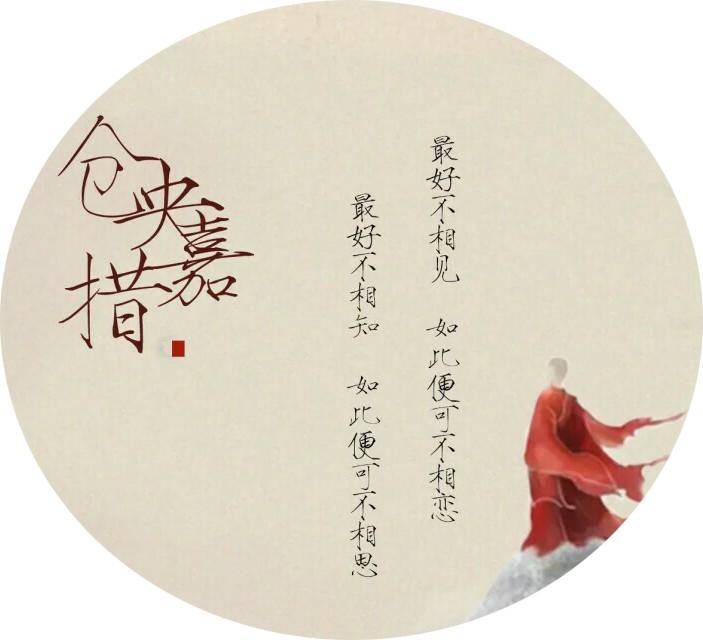 最好不相见 如此便可不相恋
最好不相知 如此便可不相思
仓央嘉措